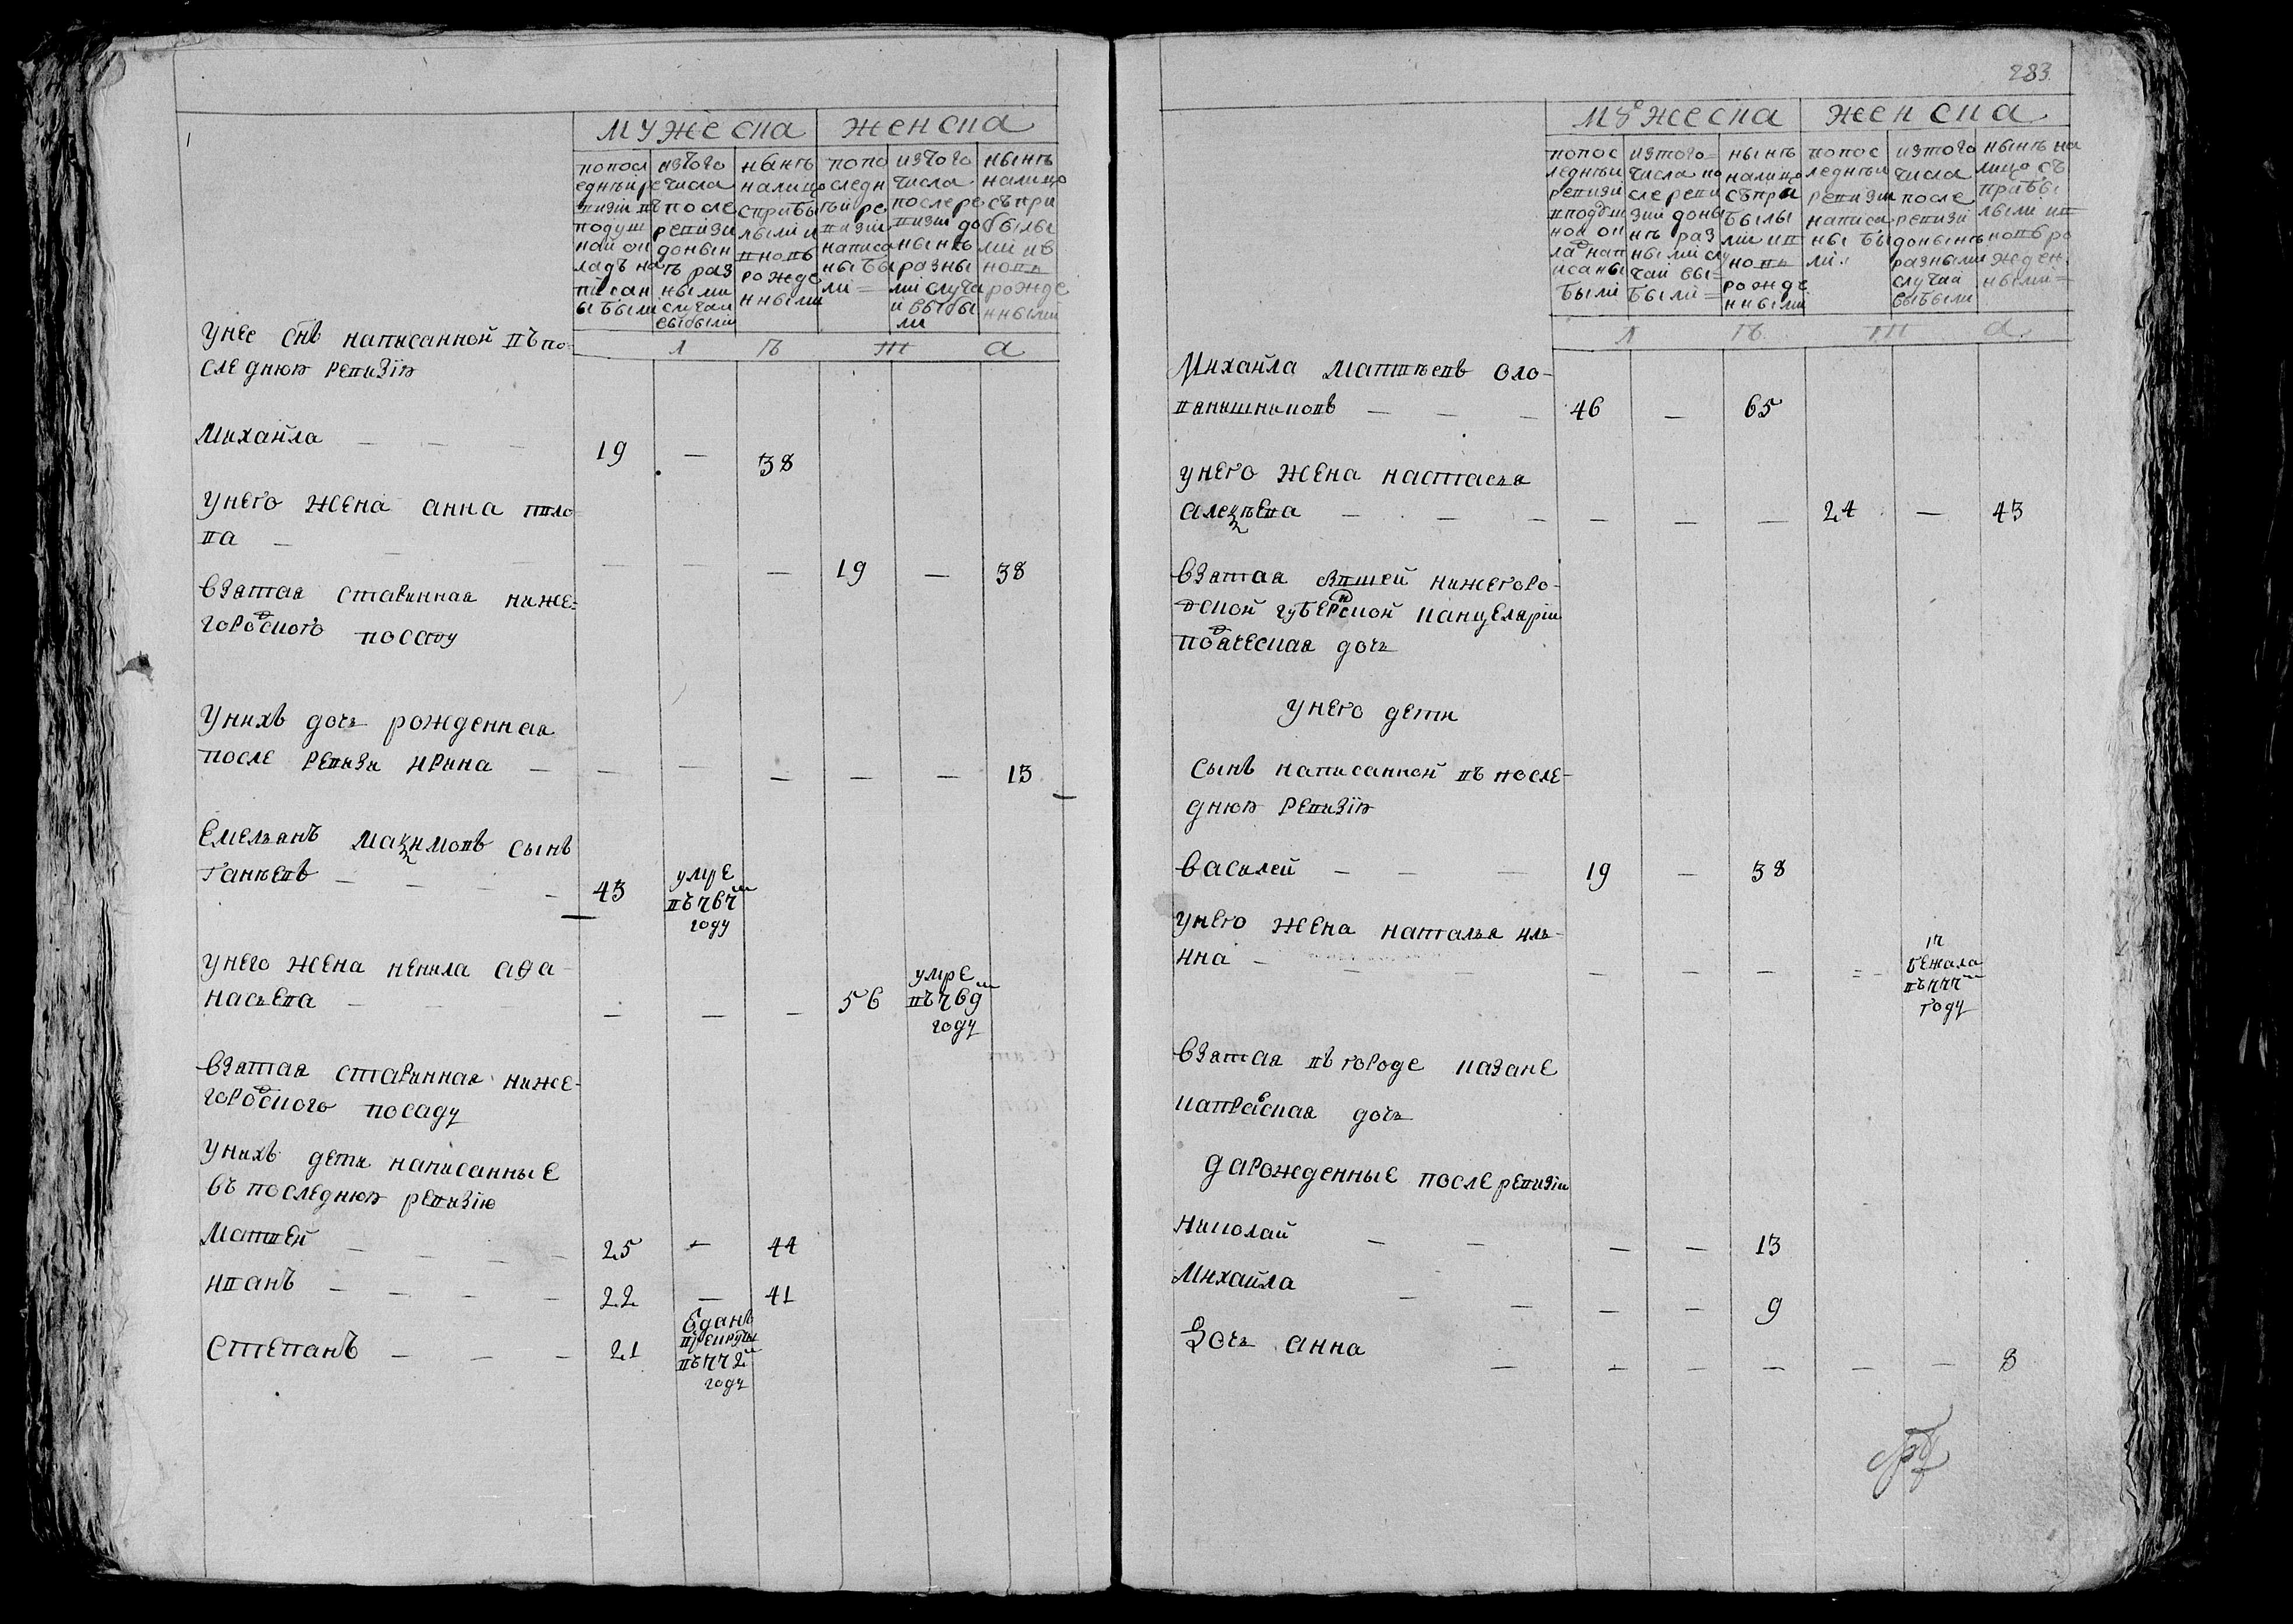 мужеска женска
по последней ревизии въ подушной окладъ написаны были
изъ того числа после ревизии доныне разными случаи выбыли
ныне налицо с прибылыми и вновь рожденными
по последней ревизии написаны были
изъ того числа после ревизии доныне разными случаи выбыли
ныне налицо съ прибылыми и вновь рожденными
л ѣ т а
У нее снъ написанной въ по-
следнюю ревизïю
Михайла — — — 19 — 38
У него жена анна
ва — — — — — — 19 — 38
взятая старинная ниже-
городского посаду
У нихъ дочь рожденная
после ревизи ирина — — — — — — 13
Емельянъ Максимовъ сынъ
Ганѣевъ — — — — 43 умре въ 767м году
У него жена ненила аѳа-
насьева — — — — — — 56 умре въ 769м году
взятая старинная ниже-
городского посаду
У нихъ дети написанные
въ последнюю ревизïю
Матвей — — — 25 — 44
иванъ — — — — 22 — 41
Степанъ — — — 21 Еданъ в рекруты въ 772м году
283
мꙋжеска женска
по последней ревизии в подушной окладъ написаны были
из того числа после ревизии доныне разными случаи выбыли
ныне налицо съ прибылыми и вновь рожденными
по последней ревизии написаны были
из того числа после ревизии доныне разными случаи выбыли
ныне налицо съ прибылыми и вновь рожденными
л ѣ т а
Михайла Матвѣевъ Оло-
вянишниковъ — — — 46 — 65
У него жена настасья
алексѣева — — — — — — 24 — 43
взятая бывшей нижегоро-
дской губернской канцелярïи
подъяческая дочь
У него дети
сынъ написанной въ после-
днюю ревизïю
василей — — — 19 — 38
У него жена наталья иль-
ина — — — — — — = бежала въ 777м году
взятая въ городе казане
дочь
да рожденные после ревизïи
николай — — — — 13
Михайла — — — — 9
Дочь анна — — — — — — 8